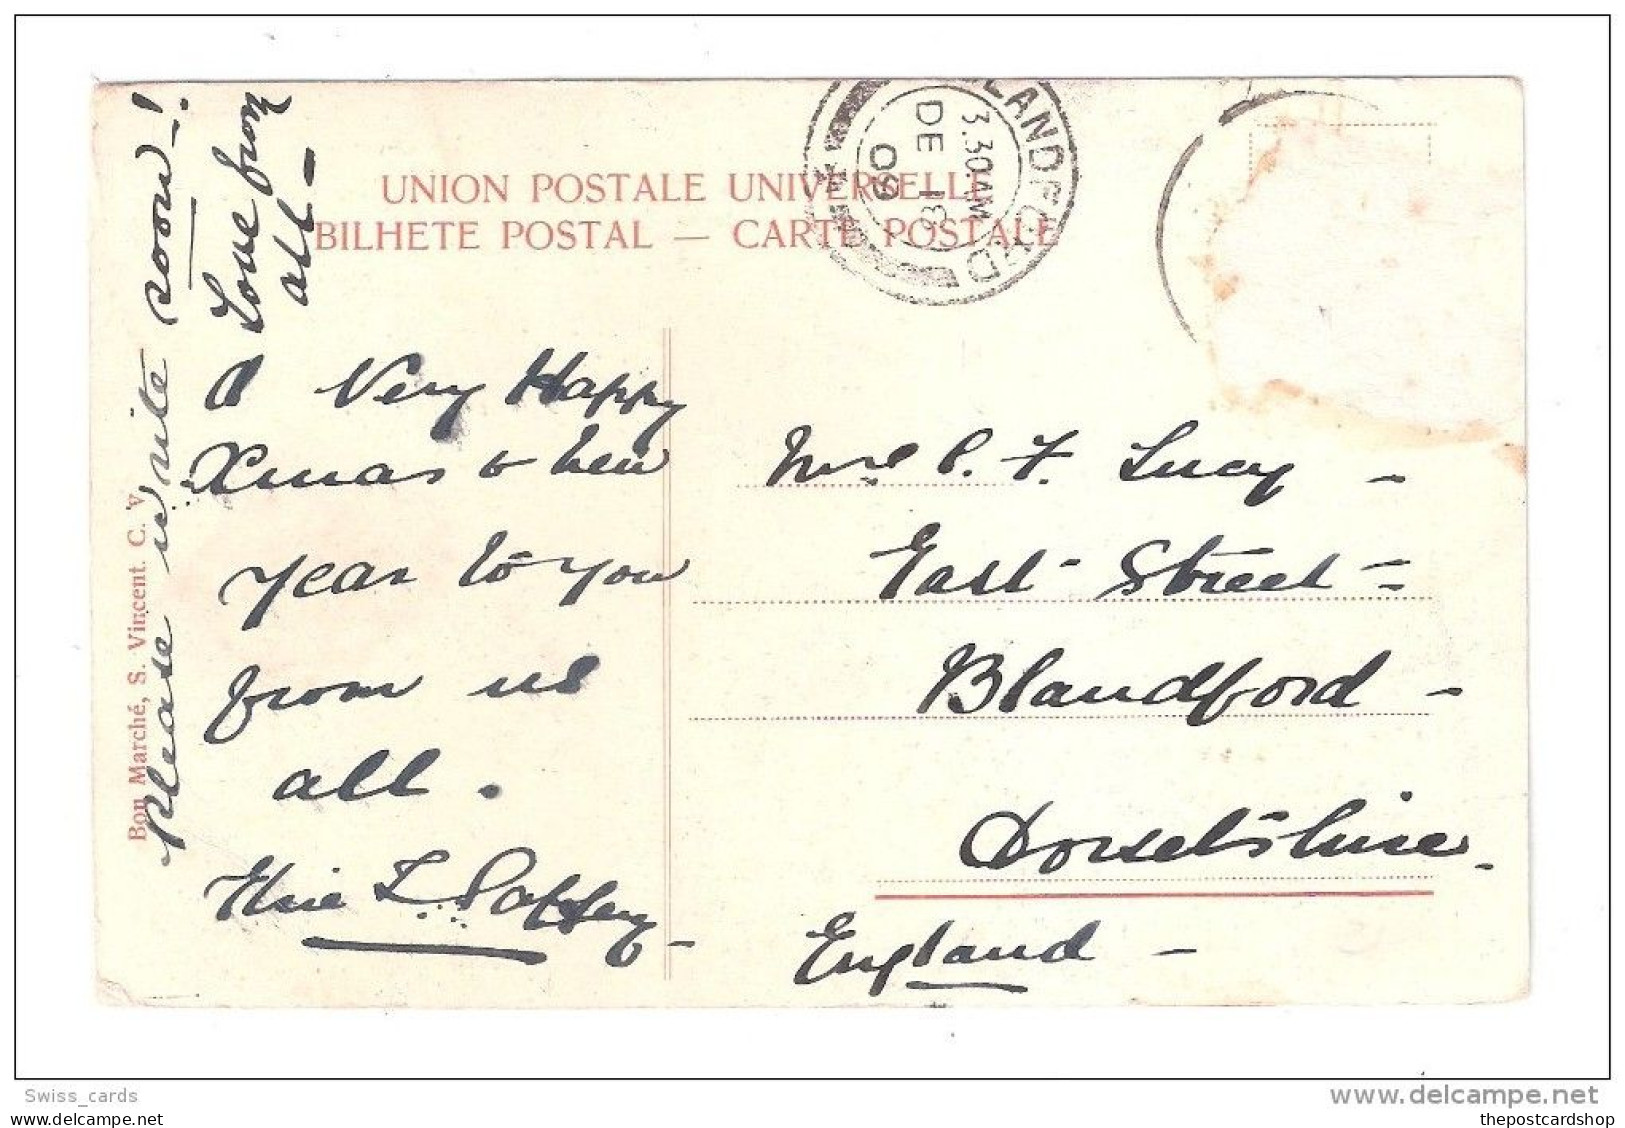 UNION POSTALE UNIVERSELLE
BILHETE POSTAL — CARTE POSTALE
BLANDFORD
3.30AM
DE 13
09
Bon Marché, S. Vincent. C. V.
please write soon!
Love from
all –
A Very Happy
Xmas & New
Year to you
from us
all.
Elsie L.
Mrs P. F. Lucy –
East Street =
Blandford –
Dorsetshire –
England –
Swiss_cards
www.delcampe.net
thepostcardshop